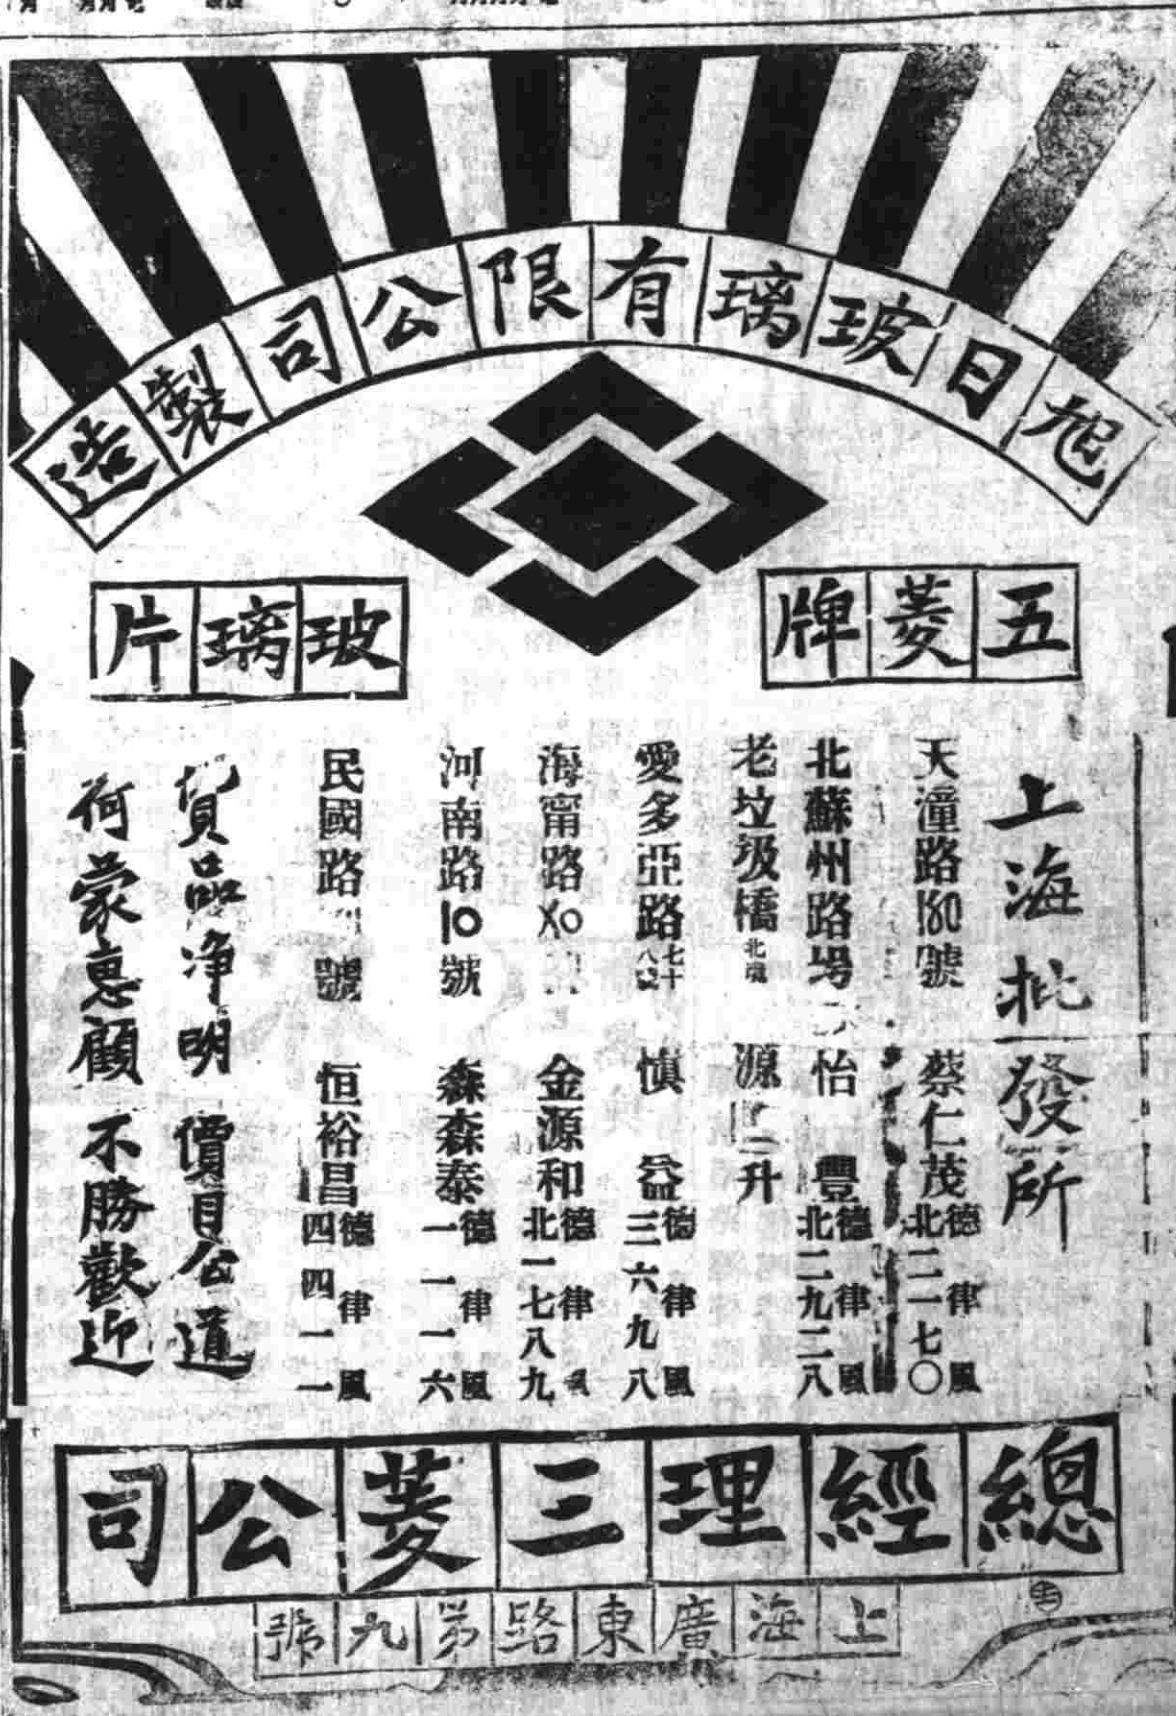 旭日玻璃有限公司製造
五菱牌
玻璃片
上海批發所
天潼路180號 蔡仁茂 德律風 北二一七〇
北蘇州路 怡豐 德律風 北二九二八
老垃圾橋北 源 升
愛多亞路七十八號 慎益 德律風 三六九八
海甯路 金源和 德律風 北一七八九
河南路10號 森森泰 德律風 一一一六
民國路 號 恒裕昌 德律風 四四一一
貨品净明 價目公道
荷蒙惠顧 不勝歡迎
總經理三菱公司
上海廣東路第九號